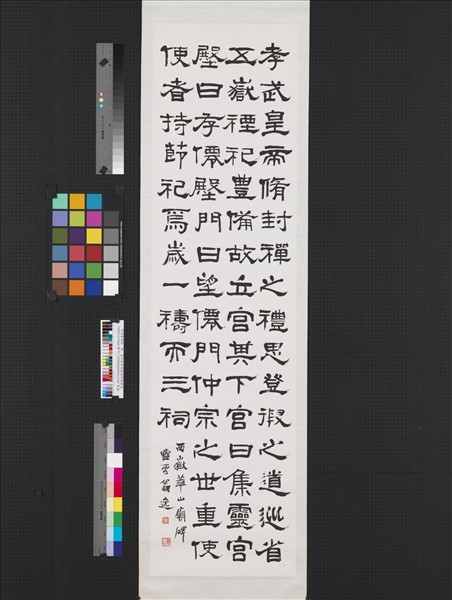 孝武皇帝脩封禪之禮思登徦之道巡省
五嶽禋祀豐備故立宮其下宮曰集靈宮
壂曰存僊壂門曰望僊門仲宗之世重使
使者持節祀焉歲一禱而三祠
西嶽華山廟碑
翁